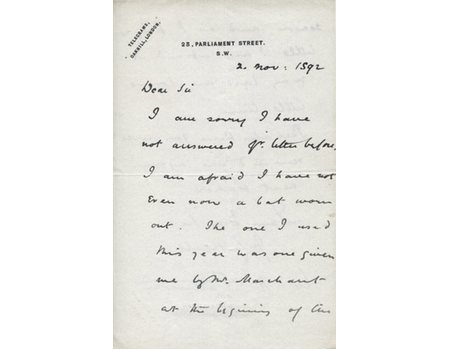 TELEGRAMS,
OAKHILL, LONDON.
23, PARLIAMENT STREET.
S.W.
2. Nov: 1892
Dear Sir
I am sorry I have
not answered yr. letter before,
I am afraid I have not
even now a bat worn
out. The one I used
this year was one given
me by Mr. Marchant
at the begining of the